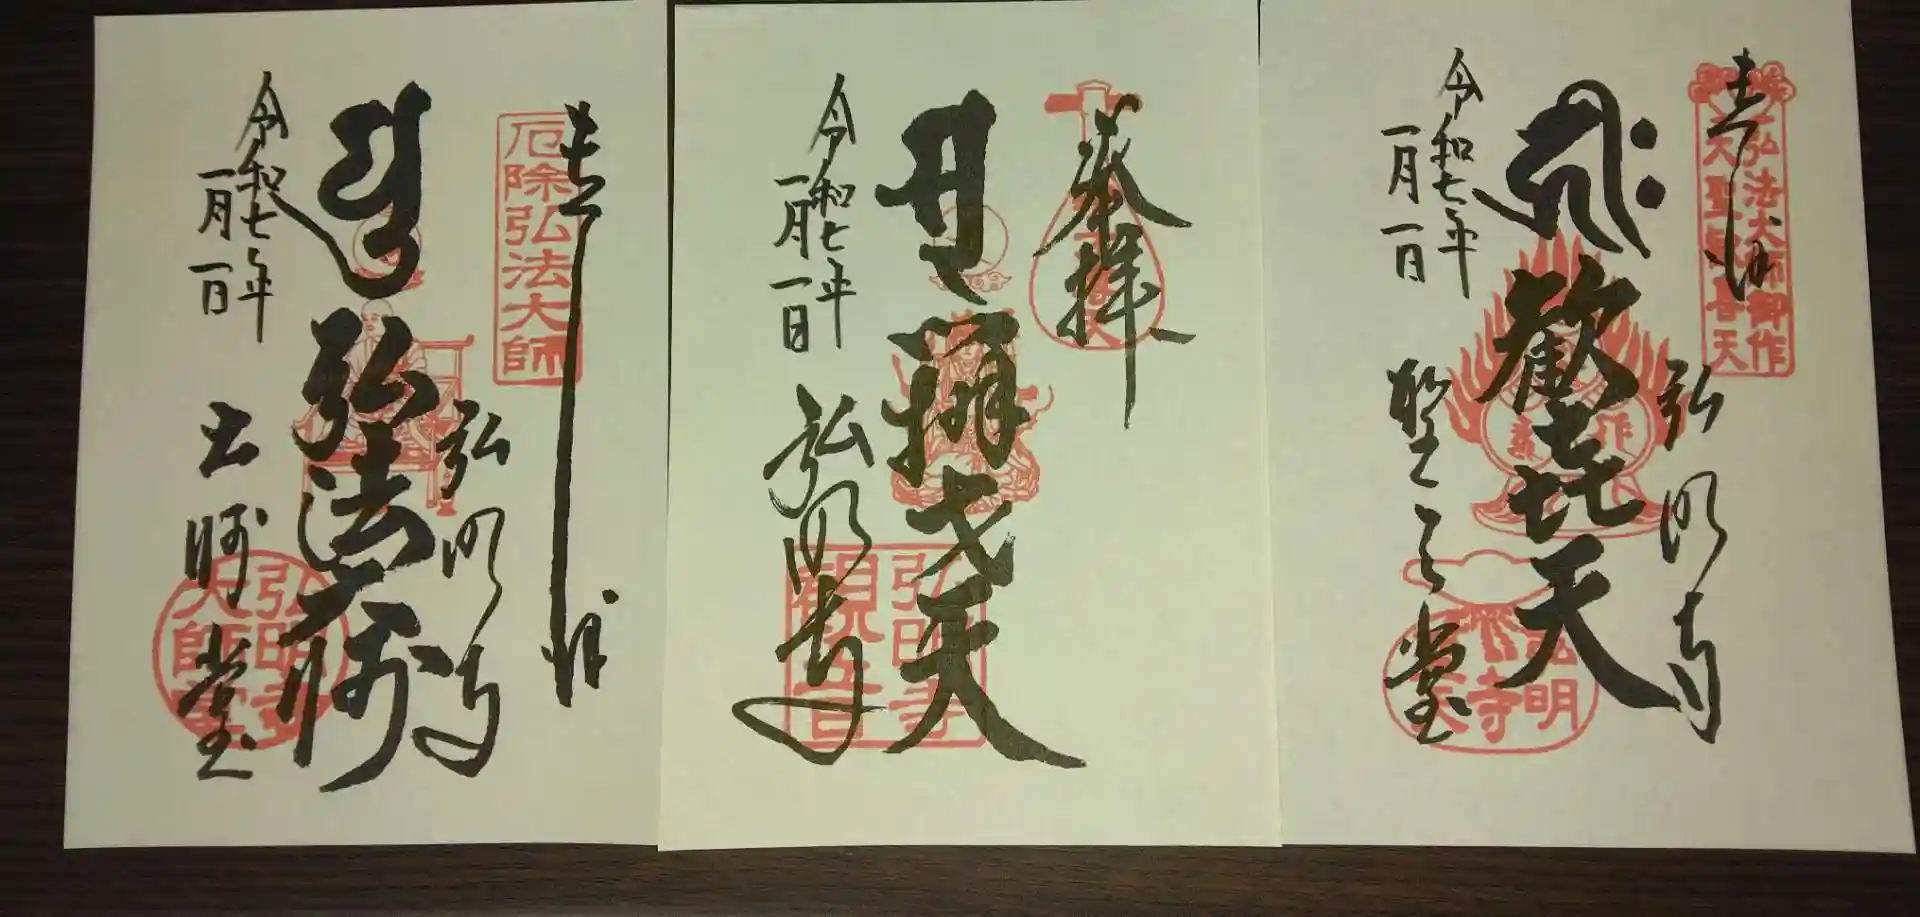 奉拝
厄除弘法大師
弘明寺
弘法大師
令和七年
一月一日
大師堂
弘明寺
大師堂
奉拝
辨才天
令和七年
一月一日
弘明寺
弘明寺
観音
奉拝
弘法大師御作
大聖歓喜天
弘明寺
歓喜天
令和七年
一月一日
聖天堂